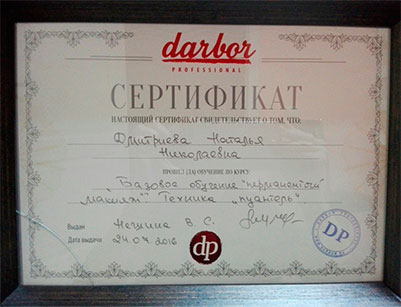 darbor
PROFESSIONAL
СЕРТИФИКАТ
НАСТОЯЩИЙ СЕРТИФИКАТ СВИДЕТЕЛЬСТВУЕТ О ТОМ, ЧТО:
Дмитриева Наталья
Николаевна
ПРОШЕЛ (ЛА) ОБУЧЕНИЕ ПО КУРСУ
„Базовое обучение "перманентный
макияж" Техника „пуантель"
Выдан Нешина В. С.
Дата выдачи 24.04 2016
dp
DP